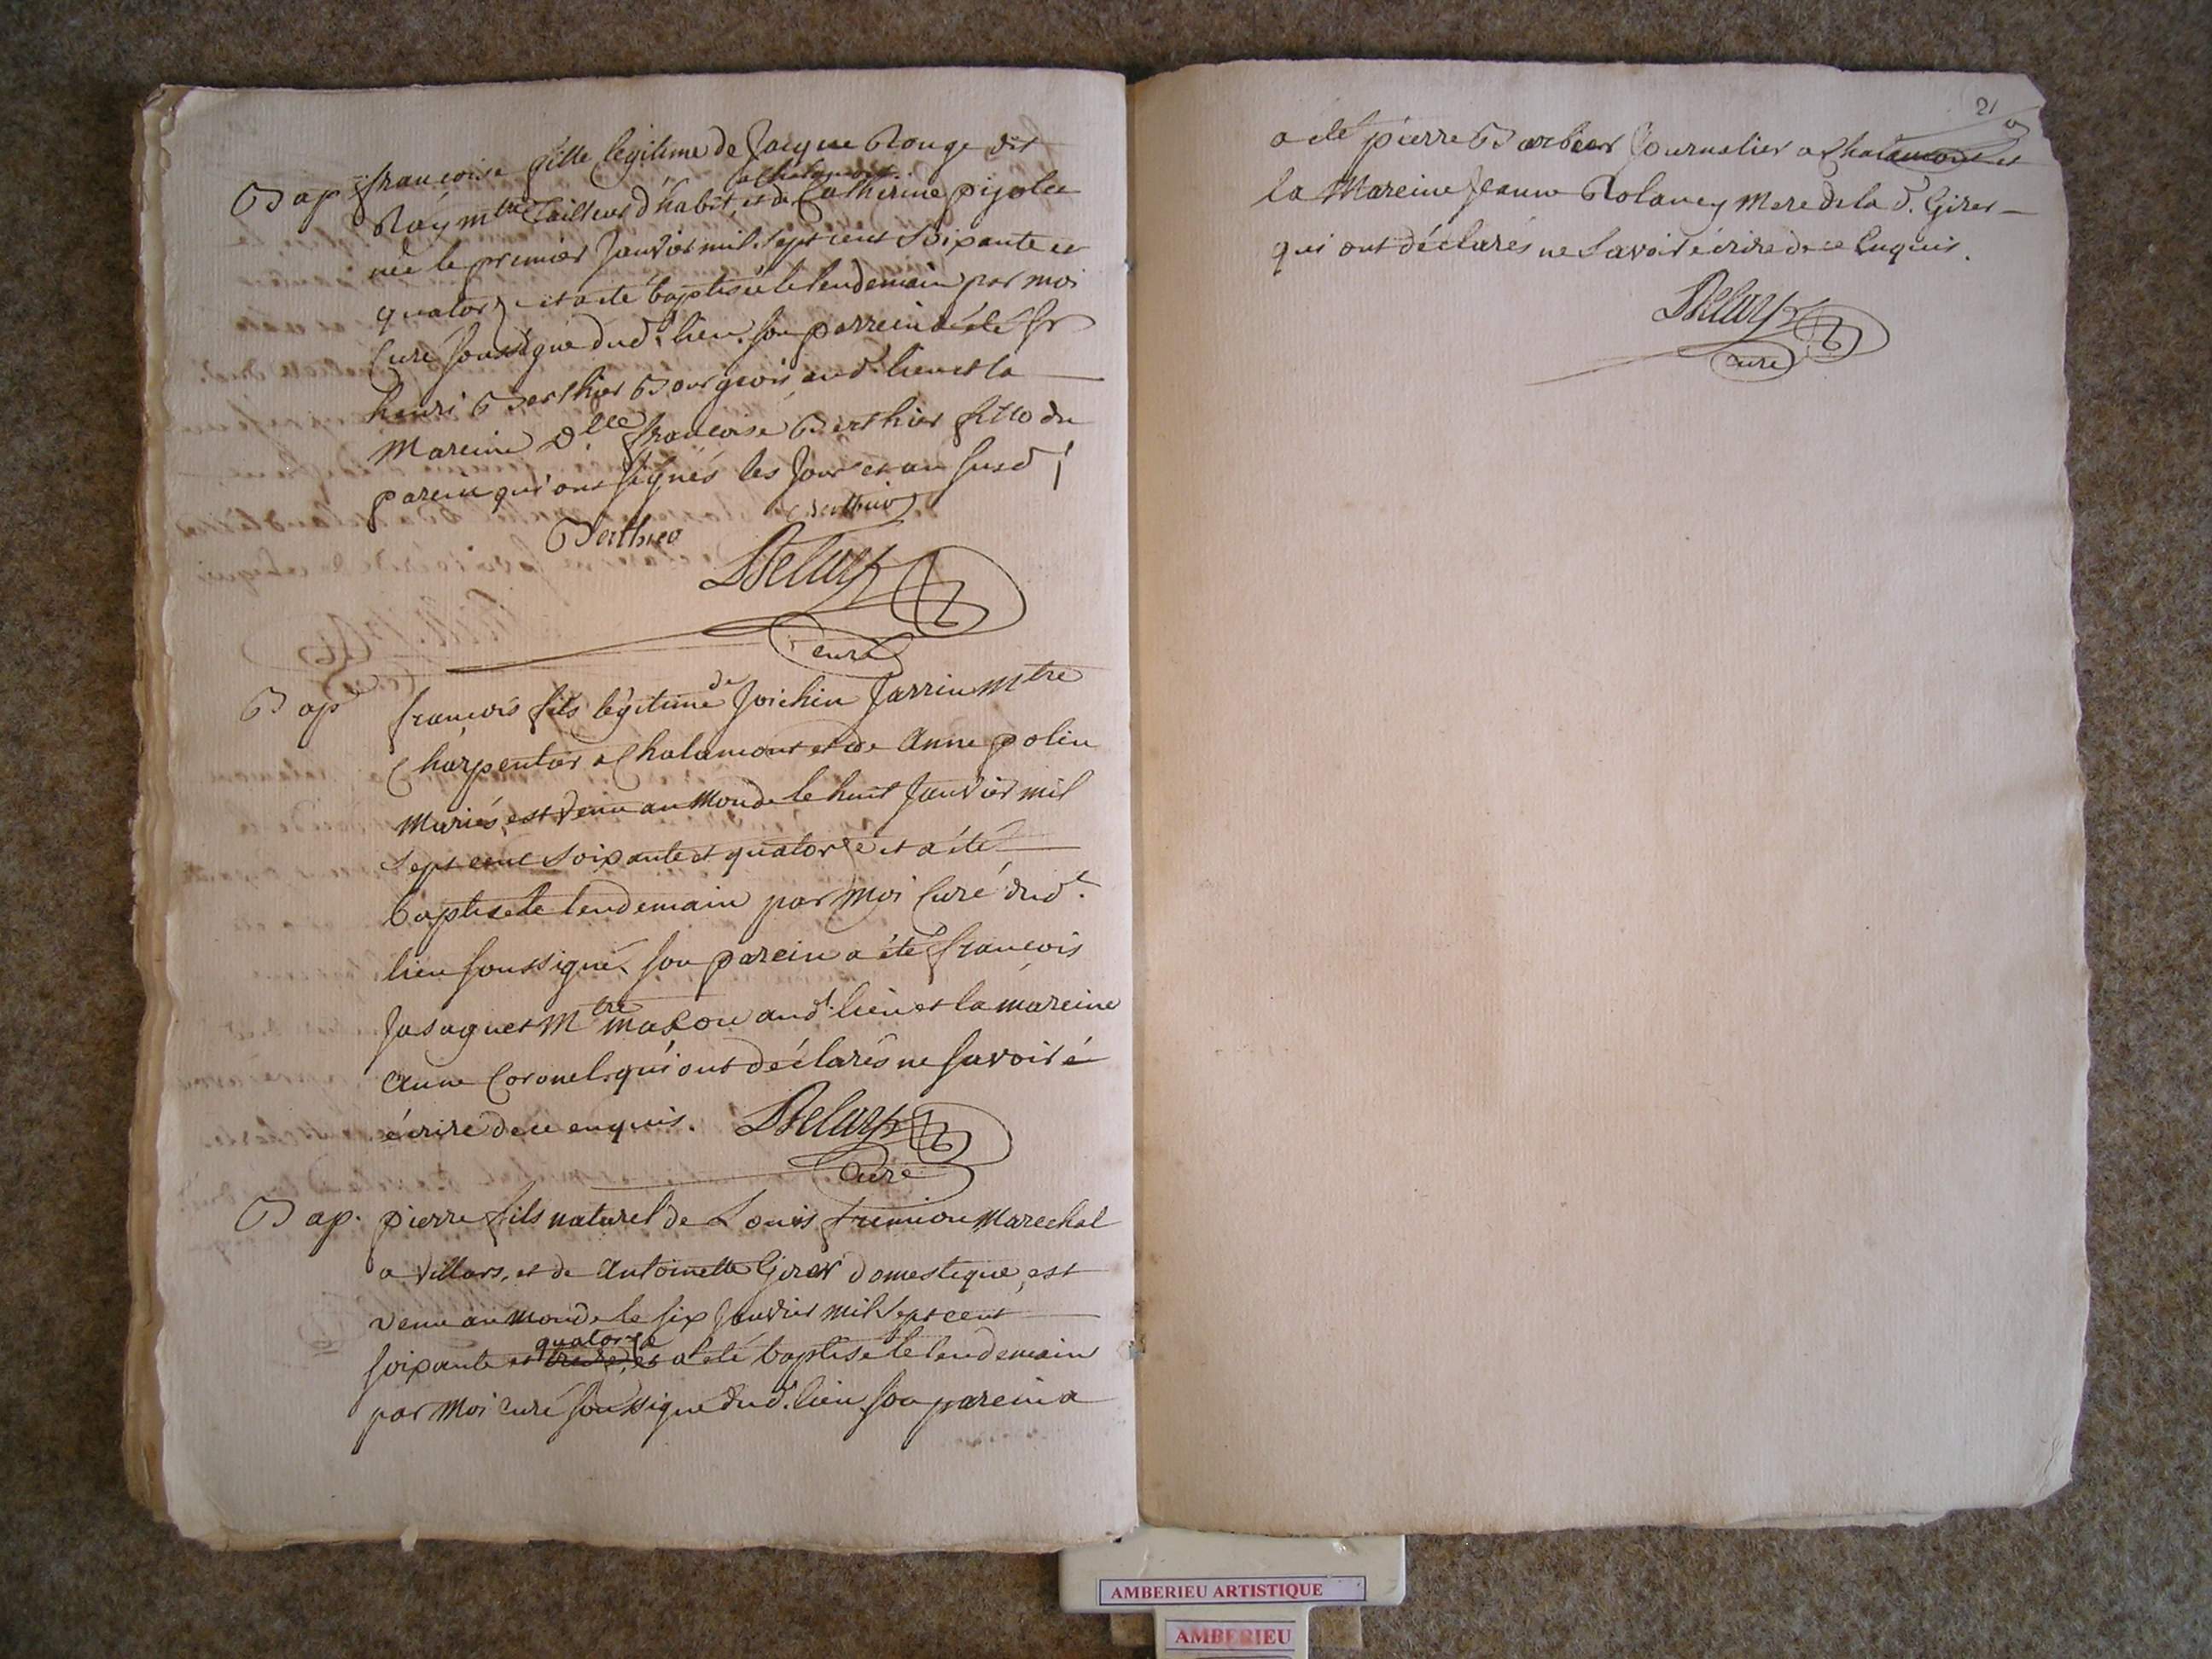 Bap françoise fille legitime de Jacque Rouge dit
Ray mtre Tailleur d'habit a Chalamont et de Catherine pijolee
née le premier Janvier mil sept cent soixante et
quatorze et a été baptisée le lendemain par moi
Curé soussigné dud. lieu. son parrein a été sr
henri Berthier Bourgeois aud. lieu et la
Mareine dlle françoise Berthier fille du
parein qui ont signés les Jour et an susd
Berthier
Berthier
curé
Bap françois fils légitime de Joichin Jarrin Mtre
Charpentier a Chalamont et de Anne polin
Mariés, est venu au Monde le huit Janvier mil
sept cent soixante et quatorze et a été
baptisé le lendemain par Moi Curé dud.
lieu soussigné. son parein a été françois
Jasaguet Mtre maçon aud. lieu et la mareine
Anne Coronel. qui ont déclarés ne savoir é
écrire de ce enquis.
Curé
Bap. pierre fils naturel de Louis Fremion Marechal
a Villars, et de Antoinette Girer domestique, est
venu au monde le six Janvier mil sept cent
soixante et quatorze a été baptisé le lendemain
par Moi curé soussigné dud. lieu. son parein a
21
a été pierre Barbier Journalier a Chalamont et
la Mareine Jeanne Rolancy Mere de la d. Girer
qui ont déclarés ne savoir écrire de ce Enquis.
Curé
AMBERIEU ARTISTIQUE
AMBERIEU